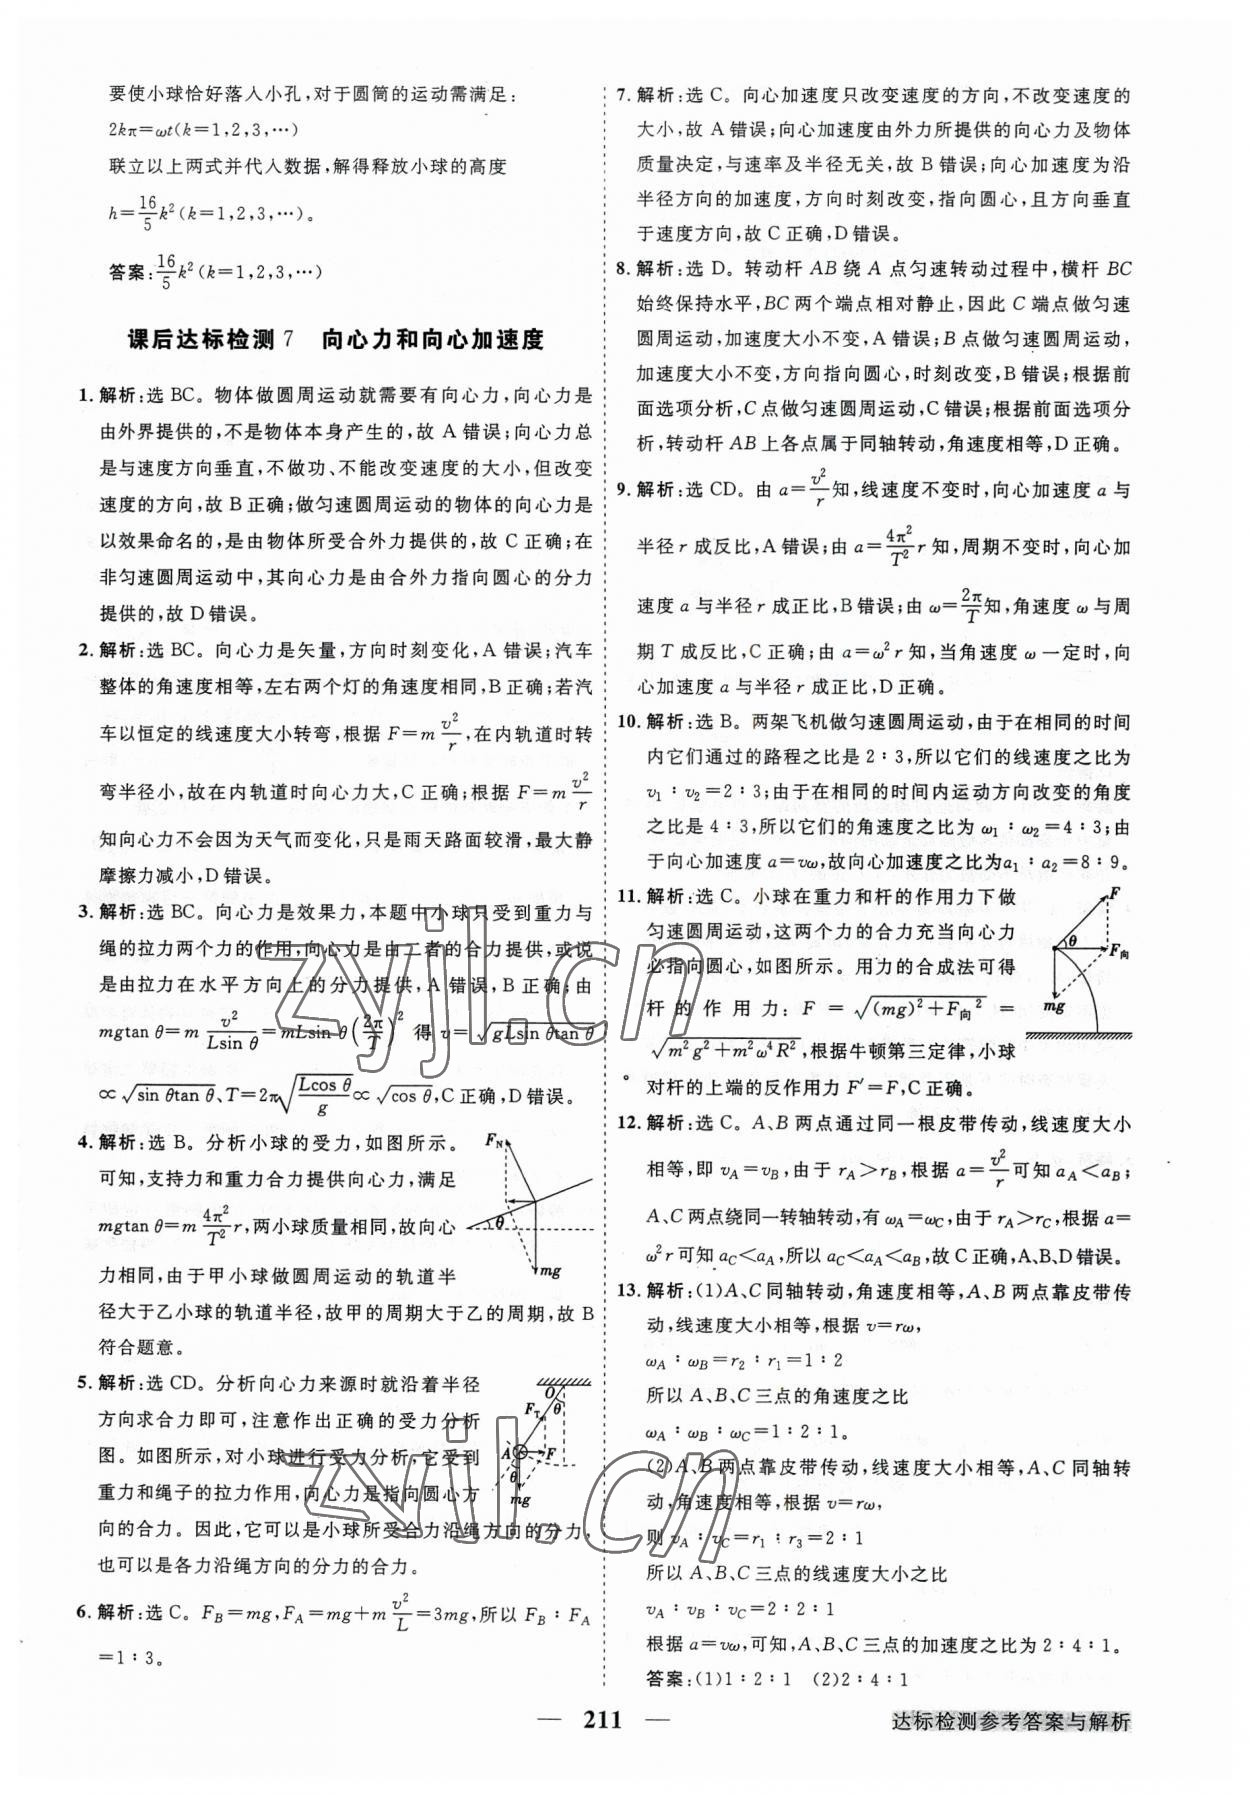 要使小球恰好落入小孔,对于圆筒的运动需满足:
2kπ=ωt(k=1,2,3,…)
联立以上两式并代入数据,解得释放小球的高度
h=16/5k²(k=1,2,3,…)。
答案:16/5k²(k=1,2,3,…)
课后达标检测7 向心力和向心加速度
1. 解析:选 BC。物体做圆周运动就需要有向心力,向心力是
由外界提供的,不是物体本身产生的,故 A 错误;向心力总
是与速度方向垂直,不做功、不能改变速度的大小,但改变
速度的方向,故 B 正确;做匀速圆周运动的物体的向心力是
以效果命名的,是由物体所受合外力提供的,故 C 正确;在
非匀速圆周运动中,其向心力是由合外力指向圆心的分力
提供的,故 D 错误。
2. 解析:选 BC。向心力是矢量,方向时刻变化,A 错误;汽车
整体的角速度相等,左右两个灯的角速度相同,B 正确;若汽
车以恒定的线速度大小转弯,根据 F=m v²/r,在内轨道时转
弯半径小,故在内轨道时向心力大,C 正确;根据 F=m v²/r
知向心力不会因为天气而变化,只是雨天路面较滑,最大静
摩擦力减小,D 错误。
3. 解析:选 BC。向心力是效果力,本题中小球只受到重力与
绳的拉力两个力的作用,向心力是由二者的合力提供,或说
是由拉力在水平方向上的分力提供,A 错误,B 正确;由
mgtan θ=m v²/(Lsin θ)=mLsin θ(2π/T)² 得 v=√(gLsin θtan θ)
∝√(sin θtan θ)、T=2π√(Lcos θ/g)∝√(cos θ),C 正确,D 错误。
4. 解析:选 B。分析小球的受力,如图所示。
可知,支持力和重力合力提供向心力,满足
mgtan θ=m 4π²/T² r,两小球质量相同,故向心
力相同,由于甲小球做圆周运动的轨道半
径大于乙小球的轨道半径,故甲的周期大于乙的周期,故 B
符合题意。
F_N
θ
mg
5. 解析:选 CD。分析向心力来源时就沿着半径
方向求合力即可,注意作出正确的受力分析
图。如图所示,对小球进行受力分析,它受到
重力和绳子的拉力作用,向心力是指向圆心方
向的合力。因此,它可以是小球所受合力沿绳方向的分力,
也可以是各力沿绳方向的分力的合力。
O
θ
F_T
A
F
θ
mg
6. 解析:选 C。F_B=mg,F_A=mg+m v²/L=3mg,所以 F_B∶F_A
=1∶3。
7. 解析:选 C。向心加速度只改变速度的方向,不改变速度的
大小,故 A 错误;向心加速度由外力所提供的向心力及物体
质量决定,与速率及半径无关,故 B 错误;向心加速度为沿
半径方向的加速度,方向时刻改变,指向圆心,且方向垂直
于速度方向,故 C 正确,D 错误。
8. 解析:选 D。转动杆 AB 绕 A 点匀速转动过程中,横杆 BC
始终保持水平,BC 两个端点相对静止,因此 C 端点做匀速
圆周运动,加速度大小不变,A 错误;B 点做匀速圆周运动,
加速度大小不变,方向指向圆心,时刻改变,B 错误;根据前
面选项分析,C 点做匀速圆周运动,C 错误;根据前面选项分
析,转动杆 AB 上各点属于同轴转动,角速度相等,D 正确。
9. 解析:选 CD。由 a=v²/r知,线速度不变时,向心加速度 a 与
半径 r 成反比,A 错误;由 a=4π²/T² r 知,周期不变时,向心加
速度 a 与半径 r 成正比,B 错误;由 ω=2π/T知,角速度 ω 与周
期 T 成反比,C 正确;由 a=ω²r 知,当角速度 ω 一定时,向
心加速度 a 与半径 r 成正比,D 正确。
10. 解析:选 B。两架飞机做匀速圆周运动,由于在相同的时间
内它们通过的路程之比是 2∶3,所以它们的线速度之比为
v₁∶v₂=2∶3;由于在相同的时间内运动方向改变的角度
之比是 4∶3,所以它们的角速度之比为 ω₁∶ω₂=4∶3;由
于向心加速度 a=vω,故向心加速度之比为a₁∶a₂=8∶9。
11. 解析:选 C。小球在重力和杆的作用力下做
匀速圆周运动,这两个力的合力充当向心力
必指向圆心,如图所示。用力的合成法可得
杆的作用力:F=√((mg)²+F向²)=
√(m²g²+m²ω⁴R²),根据牛顿第三定律,小球
对杆的上端的反作用力 F′=F,C 正确。
F
θ
F向
mg
12. 解析:选 C。A、B 两点通过同一根皮带传动,线速度大小
相等,即 v_A=v_B,由于 r_A>r_B,根据 a=v²/r可知 a_A<a_B;
A、C 两点绕同一转轴转动,有 ω_A=ω_C,由于 r_A>r_C,根据 a=
ω²r 可知 a_C<a_A,所以 a_C<a_A<a_B,故 C 正确,A、B、D 错误。
13. 解析:(1)A、C 同轴转动,角速度相等,A、B 两点靠皮带传
动,线速度大小相等,根据 v=rω,
ω_A∶ω_B=r₂∶r₁=1∶2
所以 A、B、C 三点的角速度之比
ω_A∶ω_B∶ω_C=1∶2∶1。
(2)A、B 两点靠皮带传动,线速度大小相等,A、C 同轴转
动,角速度相等,根据 v=rω,
则 v_A∶v_C=r₁∶r₃=2∶1
所以 A、B、C 三点的线速度大小之比
v_A∶v_B∶v_C=2∶2∶1
根据 a=vω,可知,A、B、C 三点的加速度之比为 2∶4∶1。
答案:(1)1∶2∶1 (2)2∶4∶1
zyjl.cn
zyjl.cn
— 211 —
达标检测参考答案与解析